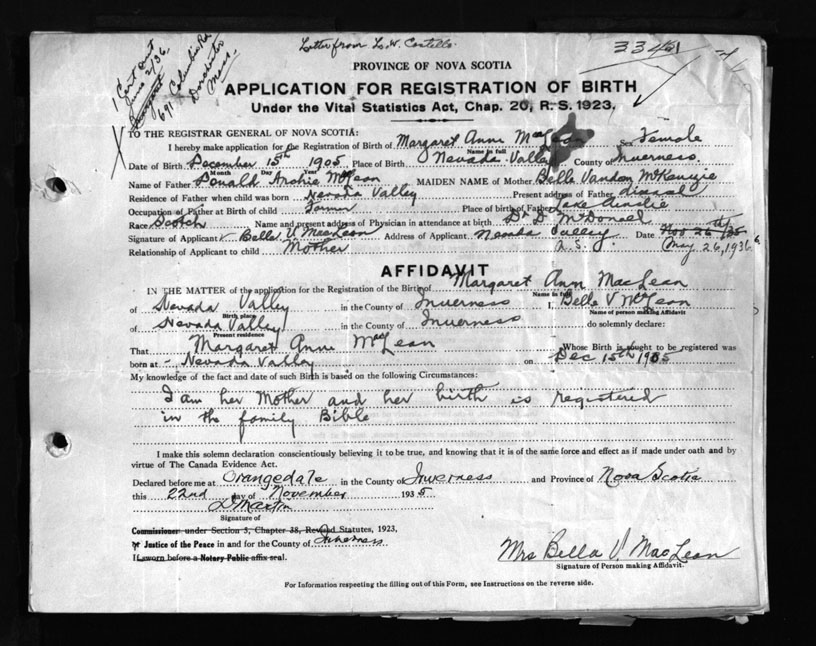 Letter from L. W. Costello.
33401
1 Cert Out
June 2/36
691 Columbia Rd
Dorchester
Mass.
PROVINCE OF NOVA SCOTIA
APPLICATION FOR REGISTRATION OF BIRTH
Under the Vital Statistics Act, Chap. 20, R. S. 1923.
TO THE REGISTRAR GENERAL OF NOVA SCOTIA:
I hereby make application for the Registration of Birth of Margaret Ann MacLean Sex Female
Name in full
Date of Birth December 15th 1905 Place of Birth Nevada Valley County of Inverness
Month Day Year
Name of Father Donald Archie McLean MAIDEN NAME of Mother Bella McKenzie
Residence of Father when child was born Nevada Valley Present address of Father
Occupation of Father at Birth of child Farmer Place of birth of Father Lake Ainslie
Race Scotch Name and present address of Physician in attendance at birth Dr D. McDonald
Signature of Applicant Bella V MacLean Address of Applicant Valley Date Nov 26th/35
N. S. May 26, 1936
Relationship of Applicant to child Mother
AFFIDAVIT
IN THE MATTER of the application for the Registration of the Birth of Margaret Ann MacLean
Name in full
of Nevada Valley in the County of Inverness I, Belle V McLean
Birth place Name of person making Affidavit
of Nevada Valley in the County of Inverness do solemnly declare:
Present residence
That Margaret Ann MacLean Whose Birth is sought to be registered was
born at - Nevada Valley on Dec 15th 1905
My knowledge of the fact and date of such Birth is based on the following Circumstances:
I am her Mother and her birth is registered
in the family Bible
I make this solemn declaration conscientiously believing it to be true, and knowing that it is of the same force and effect as if made under oath and by
virtue of The Canada Evidence Act.
Declared before me at Orangedale in the County of Inverness and Province of Nova Scotia
this 22nd day of November 1935
D Martin
Signature of
Commissioner under Section 5, Chapter 38, Revised Statutes, 1923,
or Justice of the Peace in and for the County of Inverness
If sworn before a Notary Public affix seal.
Mrs Bella V. MacLean
Signature of Person making Affidavit.
For Information respecting the filling out of this Form, see Instructions on the reverse side.